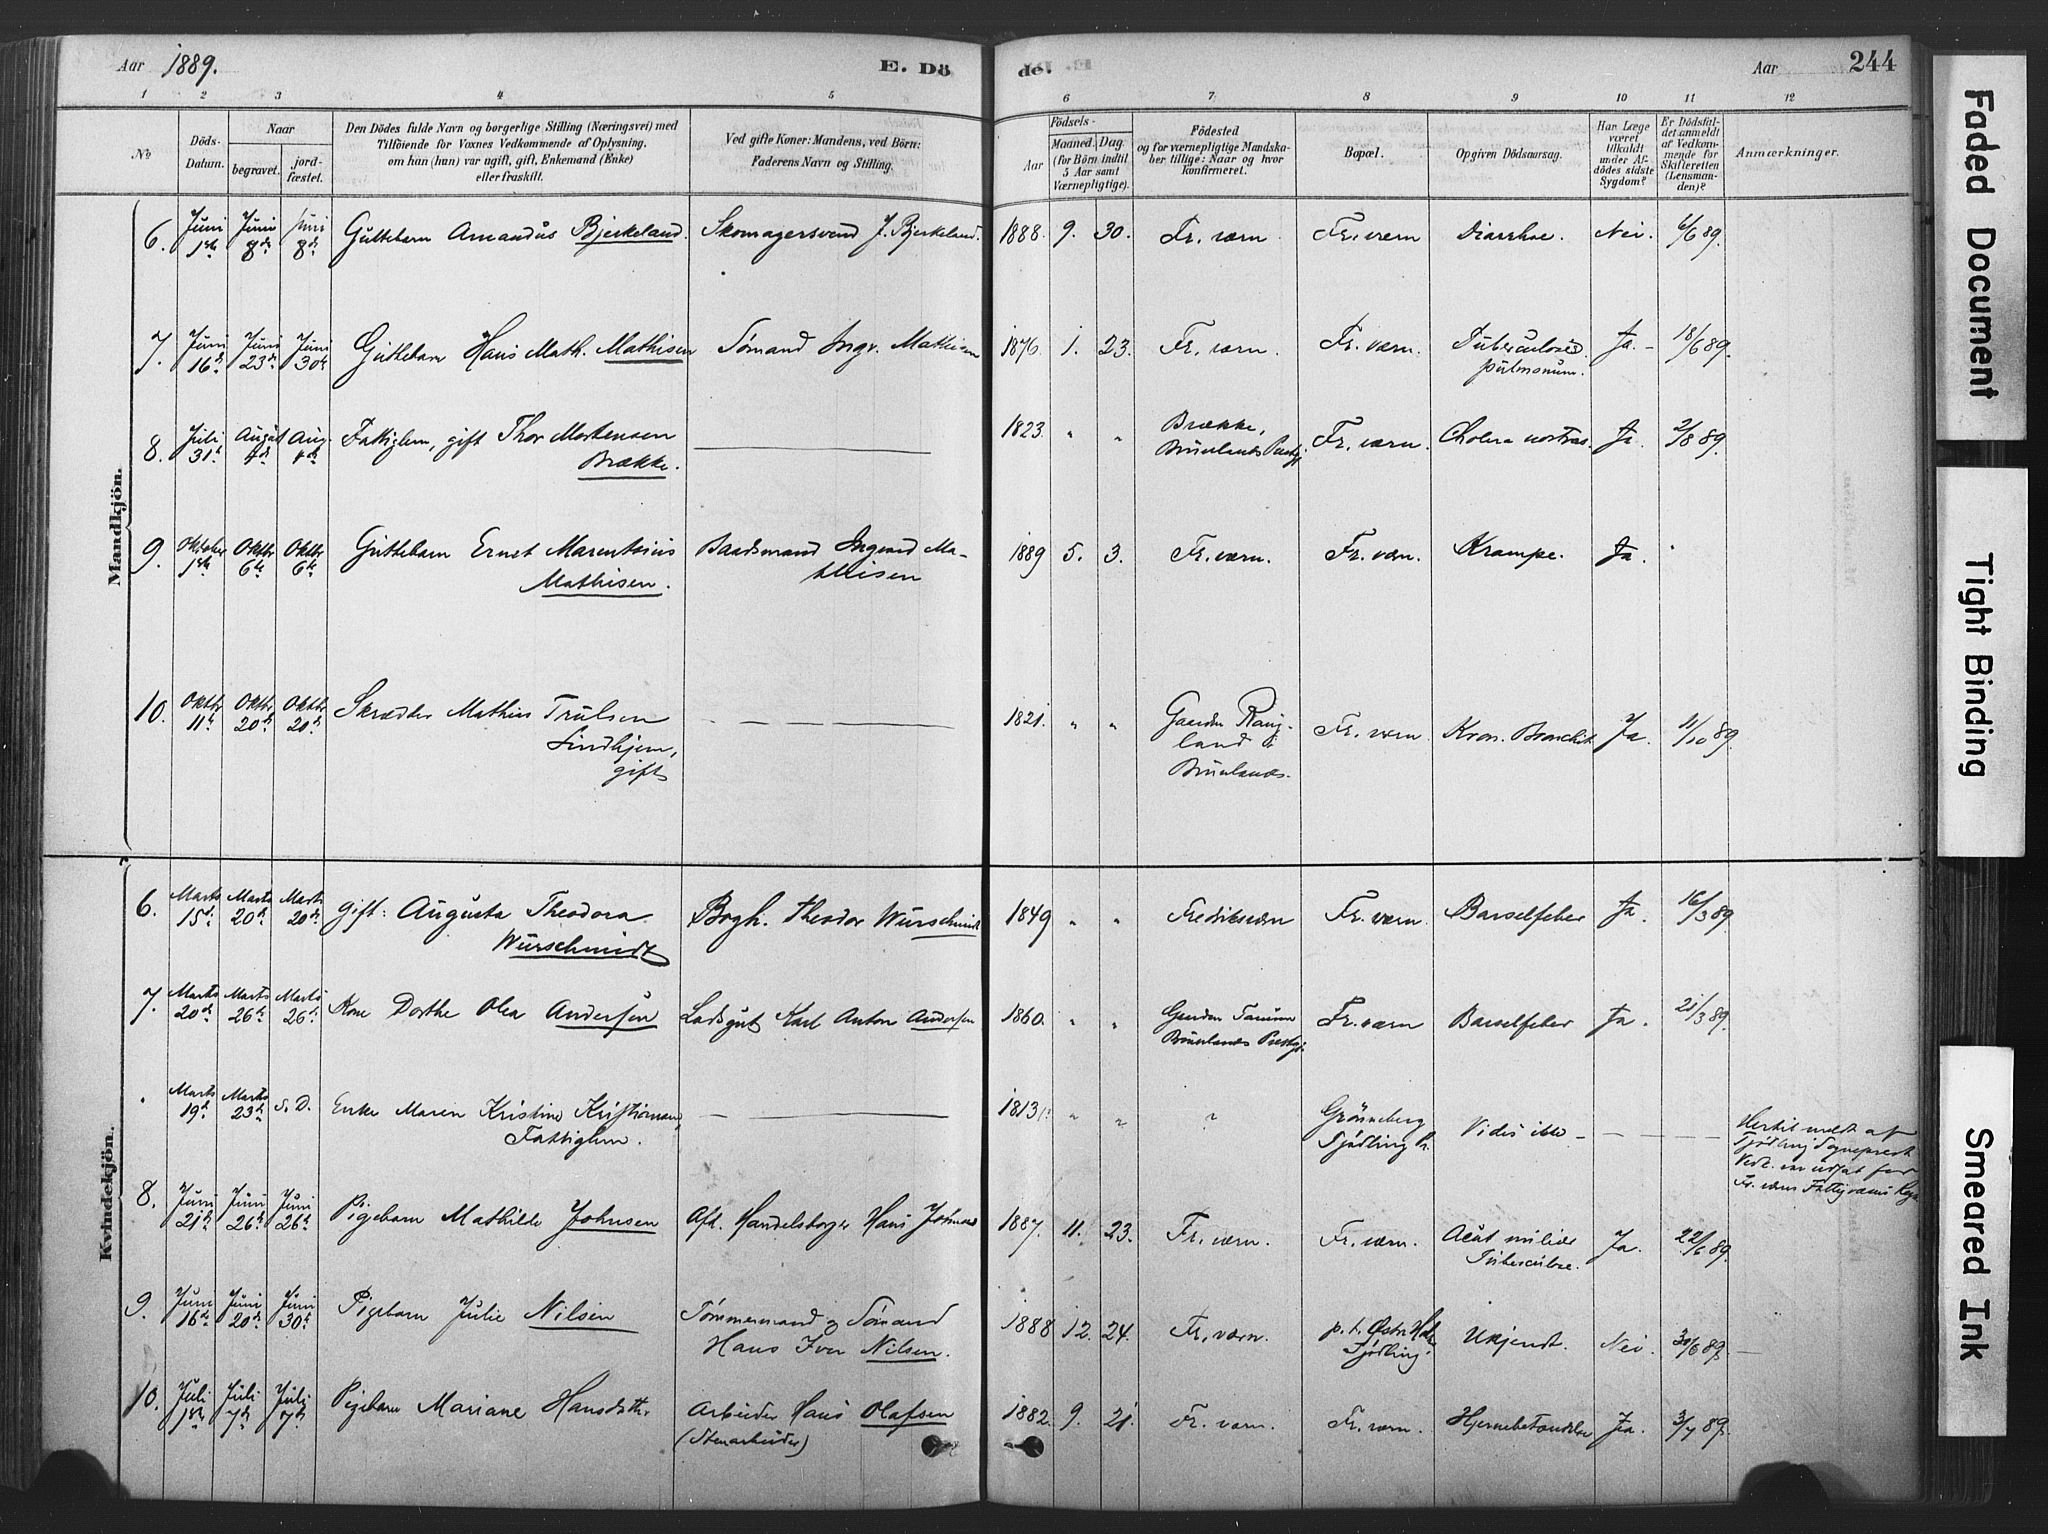 Aar 1889. E. Dö de. Aar 244
1 2 3 4 5 6 7 8 9 10 11 12
No
Döds-
Datum.
Naar
begravet.
jord-
fæstet.
Den Dödes fulde Navn og borgerlige Stilling (Næringsvei) med
Tilföiende for Voxnes Vedkommende af Oplysning,
om han (hun) var ugift, gift, Enkemand (Enke)
eller fraskilt.
Ved gifte Koner: Mandens, ved Börn:
Faderens Navn og Stilling.
Födsels-
Aar
Maaned. Dag.
(for Börn indtil
5 Aar samt
Værnepligtige).
Födested
og for værnepligtige Mandska-
ber tillige: Naar og hvor
konfirmeret.
Bopæl.
Opgiven Dödsaarsag.
Har Læge
været
tilkaldt
under Af-
dödes sidste
Sygdom?
Er Dödsfal-
det anmeldt
af Vedkom-
mende for
Skifteretten
(Lensman-
den)?
Anmærkninger.
Mandkjön.
6. Juni 1ste Juni 8de Juni 8de Guttebarn Amandus Bjerkeland. Skomagersvend J. Bjerkeland. 1888. 9. 30. Fr. værn. Fr. værn Diarrhoe. Nei. 6/6 89.
7. Juni 16de Juni 23de Juni 30te Guttebarn Hans Math. Mathisen Sömand Ingv. Mathisen 1876. 1. 23. Fr. værn. Fr. værn. Tuberculosis
pulmonum. Ja. 18/6 89.
8. Juli 31te August 4de Aug. 4de Fattiglem, gift Thor Mortensen
Brække. 1823. " " Brække,
Brunlanes Præstgj. Fr. værn. Cholera nostras Ja. 2/8 89.
9. Oktober 1ste Oktbr 6te Oktbr 6te Guttebarn Ernst Marentsius
Mathisen. Baadsmand Ingvard Ma-
thisen 1889 5. 3. Fr. værn. Fr. værn. Krampe. Ja.
10. Oktbr 11te Oktbr 20de Oktbr 20de Skrædder Mathias Trulsen
Lindhjem,
gift 1821. " " Gaarden
land i
Brunlanes. Fr. værn. Kron. Bronchit Ja. 11/10 89.
Kvindekjön.
6. Marts 15de Marts 20de Marts 20de gift: Augusta Theodora
Würschmidt Bogh. Theodor Würschmidt 1849 " " Fredriksværn Fr. værn Barselfeber Ja. 16/3 89.
7. Marts 20de Marts 26de Marts 26de Kone Dorthe Olea Andersen Ladsgut Karl Anton Andersen 1860. " " Gaarden Tanum
Brunlanes Præstgj. Fr. værn Barselfeber Ja. 21/3 89.
Marts 19de Marts 23de s. D. Enke Maren Kristine
Fattiglem. 1813 " " Grönneberg
Tjödling Vides ikke Hertil meldt af
Tjödling Sogneprest
Fr. værns Fattigvæsens
8. Juni 21de Juni 26de Juni 26de Pigebarn Mathilde Johnsen Afd. Handelsborger Hans Johnsen 1887. 11. 23. Fr. værn. Fr. værn. Acut miliær
Tuberculose. Ja. 22/6 89.
9. Juni 16de Juni 20de Juni 30te Pigebarn Julie Nilsen Tömmermand og Sömand
Hans Iver Nilsen. 1888 12. 24. Fr. værn. p. t. Östre
Tjödling. Ukjendt. Nei. 30/6 89.
10. Juli 1ste Juli 7de Juli 7de Pigebarn Mariane Hansdatter Arbeider Hans Olafsen
(Stenarbeider) 1882. 9. 21. Fr. værn. Fr. værn. Hjernebetændelse Ja. 3/7 89.
Faded Document
Tight Binding
Smeared Ink